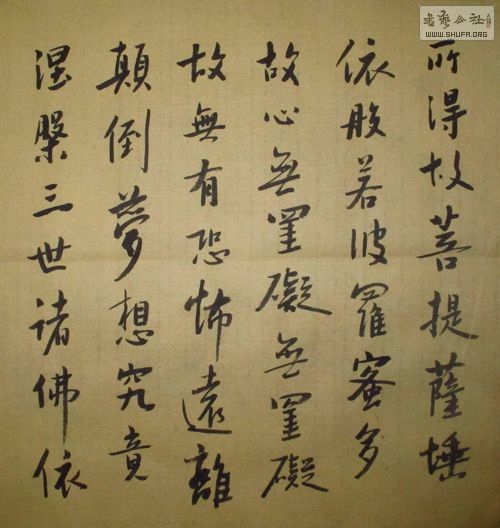 所得故菩提薩埵
依般若波羅蜜多
故心無罣礙無罣礙
故無有恐怖遠離
顛倒夢想究竟
涅槃三世諸佛依
書藝公社
WWW.SHUFA.ORG